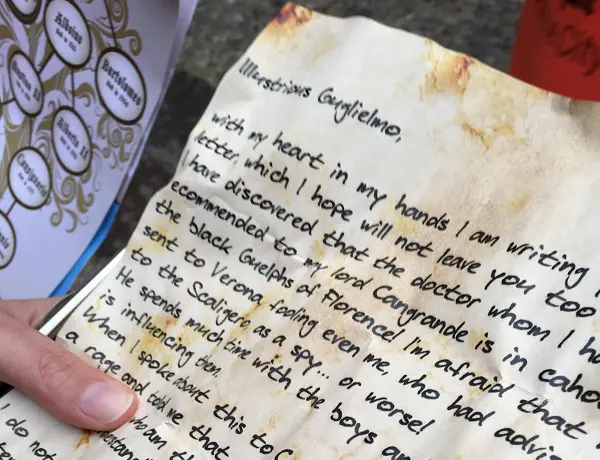 Alboino
Bartolomeo
Alberto II
Cansignorio
Illustrious Guglielmo,
with my heart in my hands I am writing
letter, which I hope will not leave you too
I have discovered that the doctor whom I ha
ecommended to my lord Cangrande is in caho
the black Guelphs of Florence! I'm afraid that
sent to Verona, fooling even me, who had advi
to the Scaligero, as a spy... or worse!
He spends much time with the boys an
is influencing them.
When I spoke about this to C
a rage and told me that
who am th
I do not